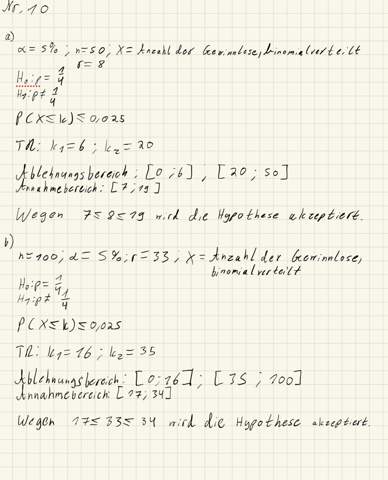 Nr. 10
a)
α = 5% ; n=50 ; X = Anzahl der Gewinnlose, binomialverteilt
r = 8
H₀: p = 1/4
H₁: p ≠ 1/4
P(X ≤ k) ≤ 0,025
TR: k₁ = 6 ; k₂ = 20
Ablehnungsbereich : [0 ; 6] , [20 ; 50]
Annahmebereich : [7 ; 19]
Wegen 7 ≤ 8 ≤ 19 wird die Hypothese akzeptiert.
b)
n=100 ; α = 5% ; r = 33 ; X = Anzahl der Gewinnlose,
binomialverteilt
H₀: p = 1/4
H₁: p ≠ 1/4
P(X ≤ k) ≤ 0,025
TR: k₁ = 16 ; k₂ = 35
Ablehnungsbereich : [0 ; 16] ; [35 ; 100]
Annahmebereich [17 ; 34]
Wegen 17 ≤ 33 ≤ 34 wird die Hypothese akzeptiert.